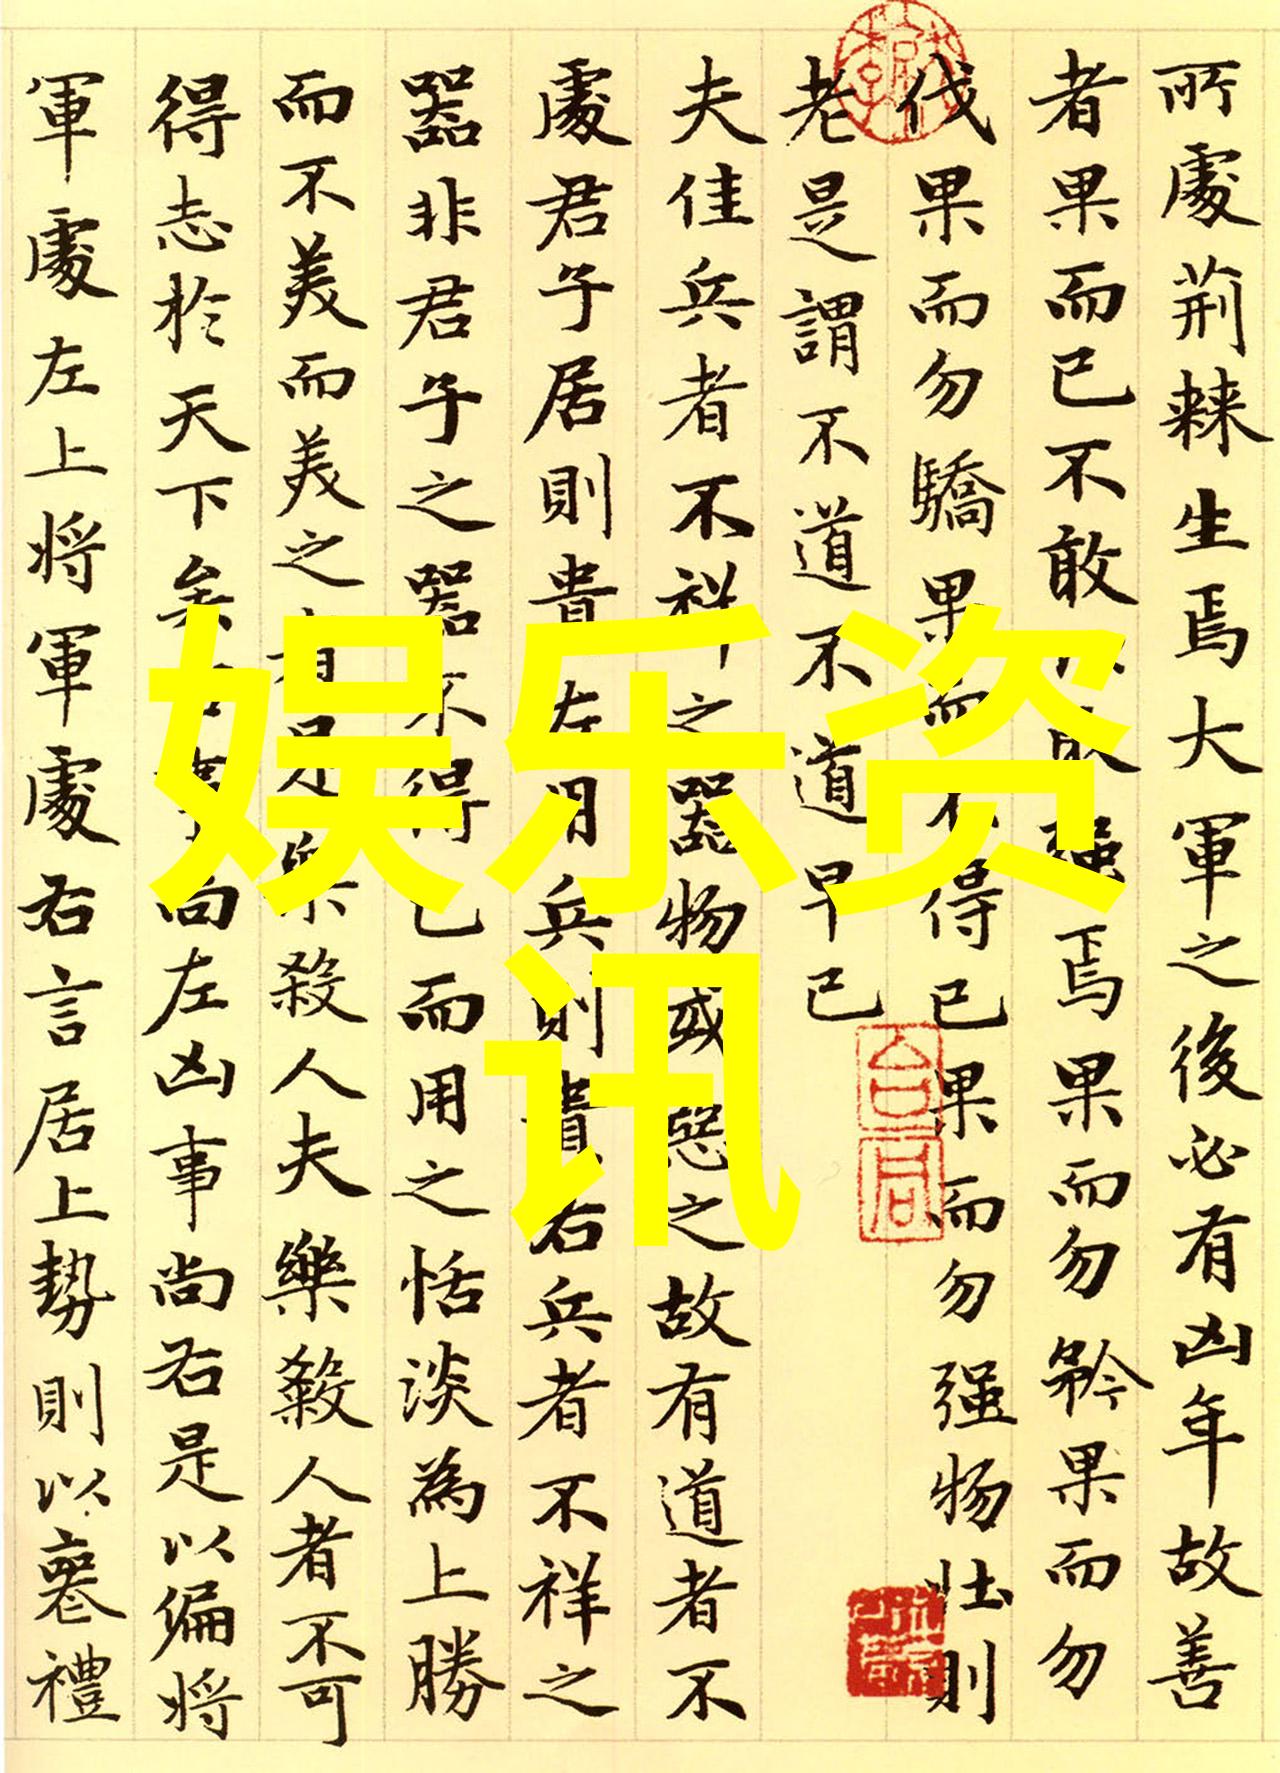 所處荊棘生焉大軍之後必有凶年故善
者果而已不敢以取强焉果而勿矜果而勿
伐果而勿驕果而不得已果而勿强物壮則
老是謂不道不道早已
夫佳兵者不祥之器物或惡之故有道者不
處君子居則貴左用兵則貴右兵者不祥之
器非君子之器不得已而用之恬淡為上勝
而不美而美之者是樂殺人夫樂殺人者不可
得志於天下矣吉事尚左凶事尚右是以偏將
軍處左上將軍處右言居上勢則以喪禮
娱乐资
讯